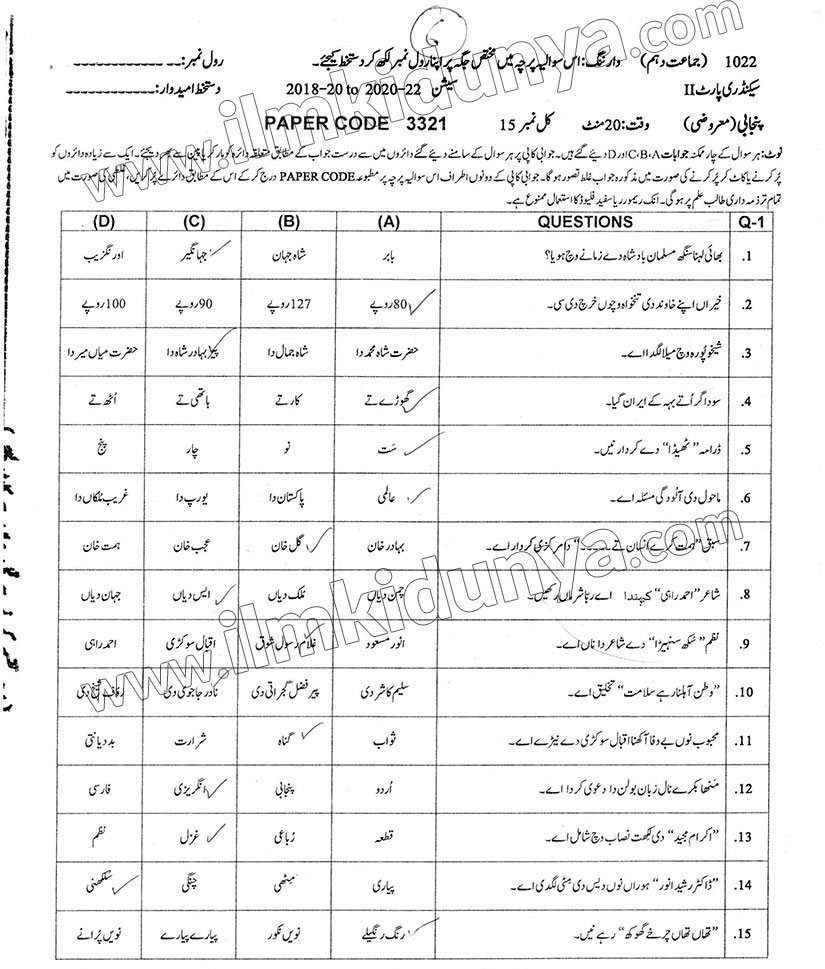 1022 (جماعت دہم) وارننگ: اس سوالیہ پرچہ میں مختص جگہ پر اپنا رول نمبر لکھ کر دستخط کیجئے۔ رول نمبر: ------------
سیکنڈری پارٹ II سیشن 2018-20 to 2020-22 دستخط امیدوار: ------------
پنجابی (معروضی) وقت: 20 منٹ کل نمبر 15 PAPER CODE 3321
نوٹ: ہر سوال کے چار ممکنہ جوابات C،B،A اور D دیئے گئے ہیں۔ جوابی کاپی پر ہر سوال کے سامنے دیئے گئے دائروں میں سے درست جواب کے مطابق متعلقہ دائرہ کو مارکر یا پین سے بھر دیجئے۔ ایک سے زیادہ دائروں کو
پُر کرنے یا کاٹ کر پُر کرنے کی صورت میں مذکورہ جواب غلط تصور ہوگا۔ جوابی کاپی کے دونوں اطراف اس سوالیہ پرچہ پر مطبوعہ PAPER CODE درج کر کے اس کے مطابق دائرے پُر کریں، غلطی کی صورت میں
تمام تر ذمہ داری طالب علم پر ہوگی۔ انک ریموور یا سفید فلیوڈ کا استعمال ممنوع ہے۔
Q-1 QUESTIONS (A) (B) (C) (D)
1. بھائی لہنا سنگھ مسلمان بادشاہ دے زمانے وچ ہویا؟ بابر شاہ جہان جہانگیر اورنگزیب
2. خیراں اپنے خاوند دی تنخواہ وچوں خرچ دی سی۔ 80 روپے 127 روپے 90 روپے 100 روپے
3. شیخوپورہ وچ میلا لگدا اے۔ حضرت شاہ محمد دا شاہ جمال دا پیر بہادر شاہ دا حضرت میاں میر دا
4. سوداگر اُتے بہہ کے ایران گیا۔ گھوڑے تے کار تے ہاتھی تے اُٹھ تے
5. ڈرامہ "ٹھیڈا" دے کردار نیں۔ ست نو چار پنج
6. ماحول دی آلودگی مسئلہ اے۔ عالمی پاکستان دا یورپ دا غریب ملکاں دا
7. سبق "ہمت کرے انسان تے ۔۔۔۔" دا مرکزی کردار اے۔ بہادر خان گل خان عجب خان ہمت خان
8. شاعر "احمد راہی" کہندا اے ربا شرماں رکھیں۔ چمن دیاں مُلک دیاں ایس دیاں جہان دیاں
9. نظم "سُکھ سنہیڑا" دے شاعر دا ناں اے۔ انور مسعود غلام رسول شوق اقبال سوکڑی احمد راہی
10. "وطن آہلنا رہے سلامت" تخلیق اے۔ سلیم کاشر دی پیر فضل گجراتی دی نادر جاجوی دی رؤف شیخ دی
11. محبوب نوں بے وفا آکھنا اقبال سوکڑی دے نیڑے اے۔ ثواب گناہ شرارت بددیانتی
12. مُنھا بکرے نال زبان بولن دا دعوی کردا اے۔ اُردو پنجابی انگریزی فارسی
13. "اکرام مجید" دی لکھت نصاب وچ شامل اے۔ قطعہ رُباعی غزل نظم
14. "ڈاکٹر رشید انور" ہوراں نوں دیس دی مٹی لگدی اے۔ پیاری مِٹھی چنگی سُلکھنی
15. "تھاں تھاں چرخے گھوکھ" رہے نیں۔ رنگ رنگیلے نویں نکور پیارے پیارے نویں پُرانے
www.ilmkidunya.com
www.ilmkidunya.com
www.ilmkidunya.com